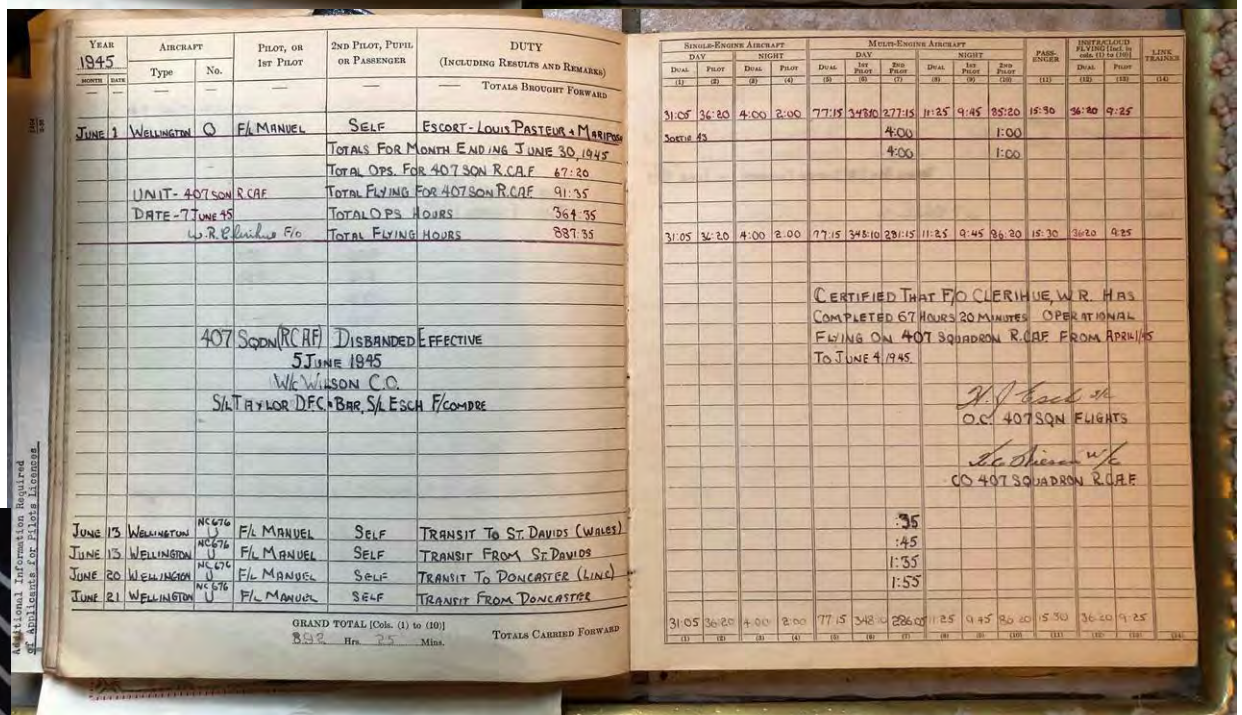 YEAR 1945 AIRCRAFT PILOT, OR 1ST PILOT 2ND PILOT, PUPIL OR PASSENGER DUTY (INCLUDING RESULTS AND REMARKS)
MONTH DATE Type No.
— — — — — — — TOTALS BROUGHT FORWARD
JUNE 1 WELLINGTON O F/L MANUEL SELF ESCORT - LOUIS PASTEUR + MARIPOSA
TOTALS FOR MONTH ENDING JUNE 30, 1945
TOTAL OPS. FOR 407 SQN R.C.A.F 67:20
UNIT - 407 SQN R.C.A.F TOTAL FLYING FOR 407 SQN R.C.A.F 91:35
DATE - 7 JUNE 45 TOTAL OPS HOURS 364:35
W.R. Clerihue F/O TOTAL FLYING HOURS 887:35
407 SQDN (RCAF) DISBANDED EFFECTIVE
5 JUNE 1945
W/C WILSON C.O.
S/L TAYLOR DFC & BAR, S/L ESCH F/COMDRE
JUNE 13 WELLINGTON NC676 U F/L MANUEL SELF TRANSIT TO ST. DAVIDS (WALES)
JUNE 13 WELLINGTON NC676 U F/L MANUEL SELF TRANSIT FROM ST. DAVIDS
JUNE 20 WELLINGTON NC676 U F/L MANUEL SELF TRANSIT TO DONCASTER (LINC)
JUNE 21 WELLINGTON NC676 U F/L MANUEL SELF TRANSIT FROM DONCASTER
GRAND TOTAL [Cols. (1) to (10)]
892 Hrs. 25 Mins. TOTALS CARRIED FORWARD
Additional Information Required
of Applicants for Pilots Licences
SINGLE-ENGINE AIRCRAFT MULTI-ENGINE AIRCRAFT PASSENGER INSTR/CLOUD FLYING [Incl. in cols. (1) to (10)] LINK TRAINER
DAY NIGHT DAY NIGHT
DUAL PILOT DUAL PILOT DUAL 1ST PILOT 2ND PILOT DUAL 1ST PILOT 2ND PILOT DUAL PILOT
(1) (2) (3) (4) (5) (6) (7) (8) (9) (10) (11) (12) (13) (14)
31:05 36:20 4:00 2:00 77:15 348:10 277:15 11:25 9:45 85:20 15:30 36:20 9:25
SORTIE 43 4:00 1:00
4:00 1:00
31:05 36:20 4:00 2:00 77:15 348:10 281:15 11:25 9:45 86:20 15:30 36:20 9:25
CERTIFIED THAT F/O CLERIHUE, W.R. HAS
COMPLETED 67 HOURS 20 MINUTES OPERATIONAL
FLYING ON 407 SQUADRON R.C.A.F FROM APRIL 1/45
TO JUNE 4, 1945.
H. J. Esch S/L
O.C. 407 SQN FLIGHTS
W/C
CO 407 SQUADRON R.C.A.F
:35
:45
1:35
1:55
31:05 36:20 4:00 2:00 77:15 348:10 286:05 11:25 9:45 86:20 15:30 36:20 9:25
(1) (2) (3) (4) (5) (6) (7) (8) (9) (10) (11) (12) (13) (14)